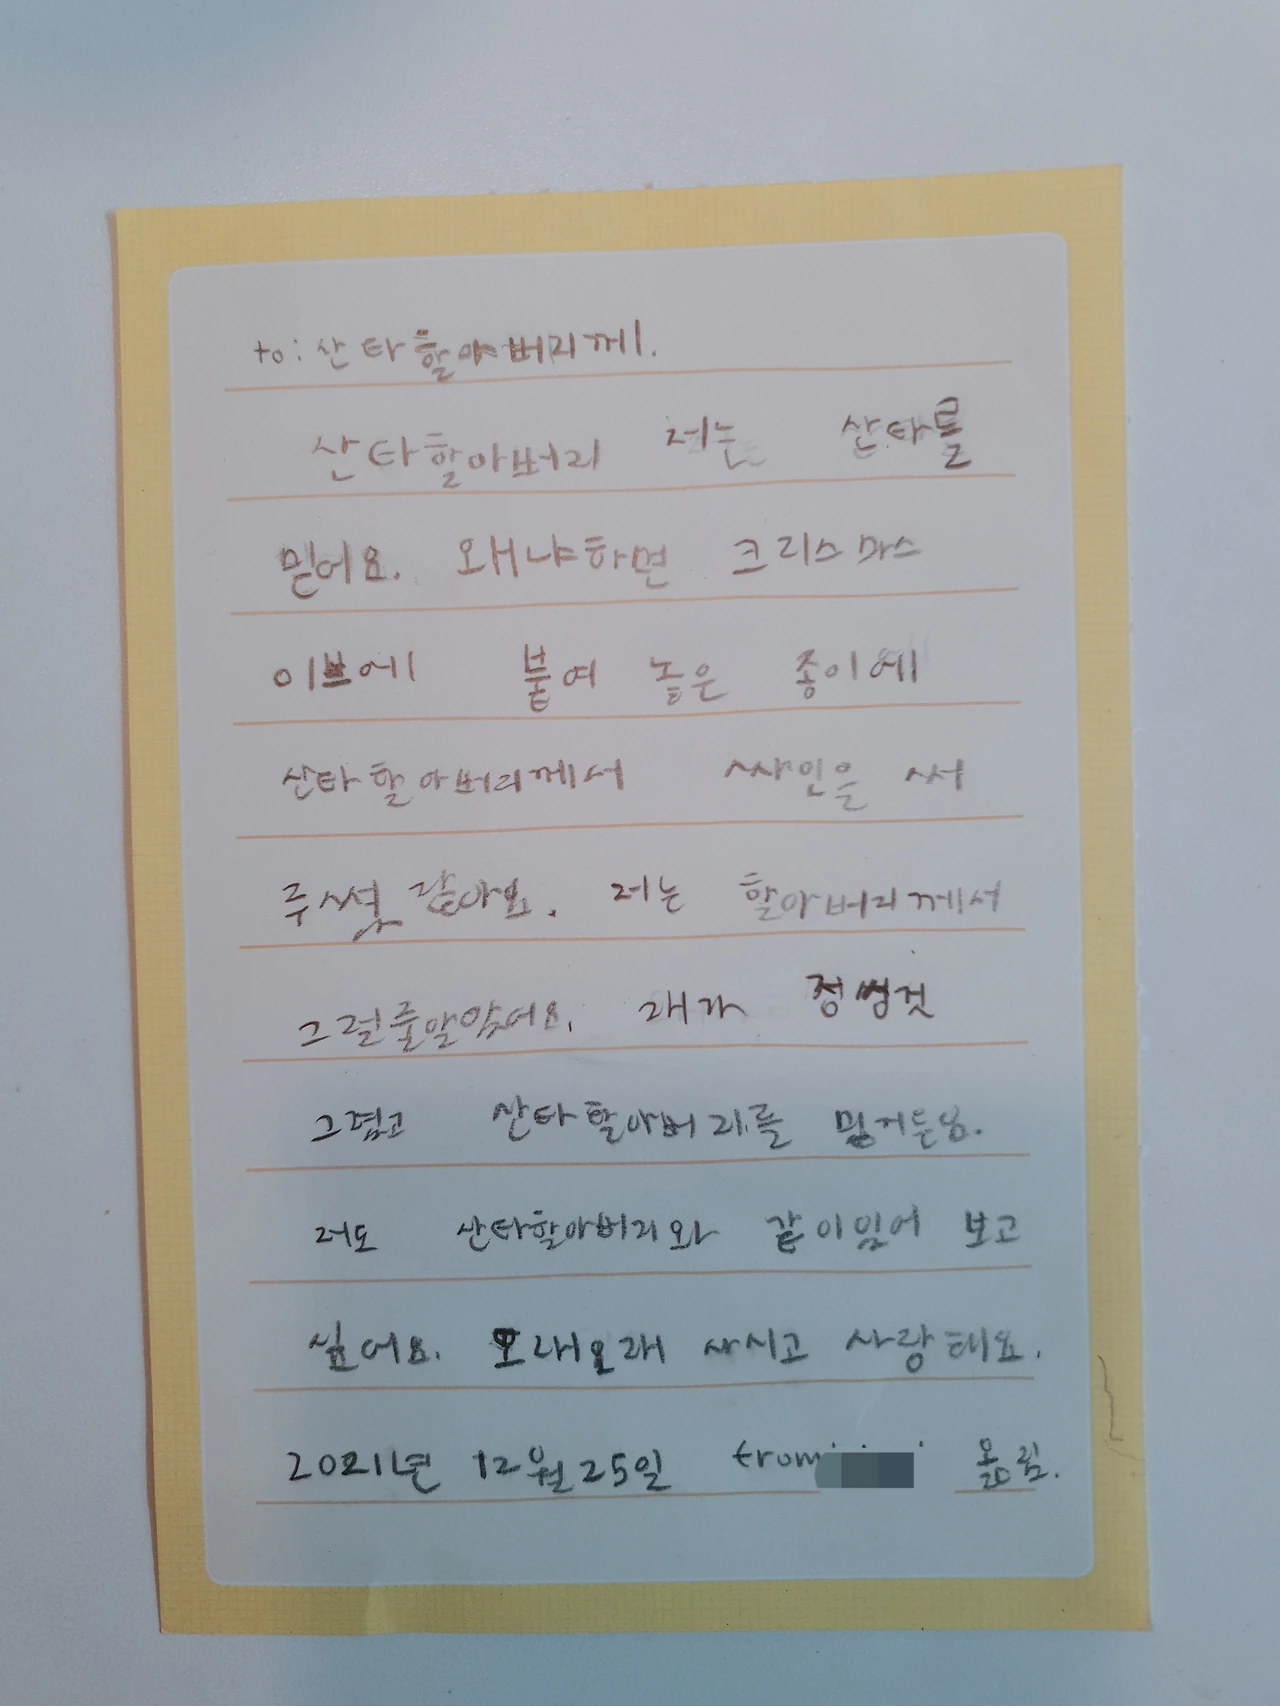 to: 산타할아버리께.
산타할아버리 저는 산타를
믿어요. 왜냐하면 크리스마스
이브에 붙여 놓은 종이에
산타할아버리께서 싸인을 써
주셨 같아요. 저는 할아버리께서
그럴줄알았어요. 래가
그렸고 산타할아버리를
저도 산타할아버리와 같이있어 보고
싶어요. 오래오래 사시고 사랑해요.
2021년 12월25일 from 올림.